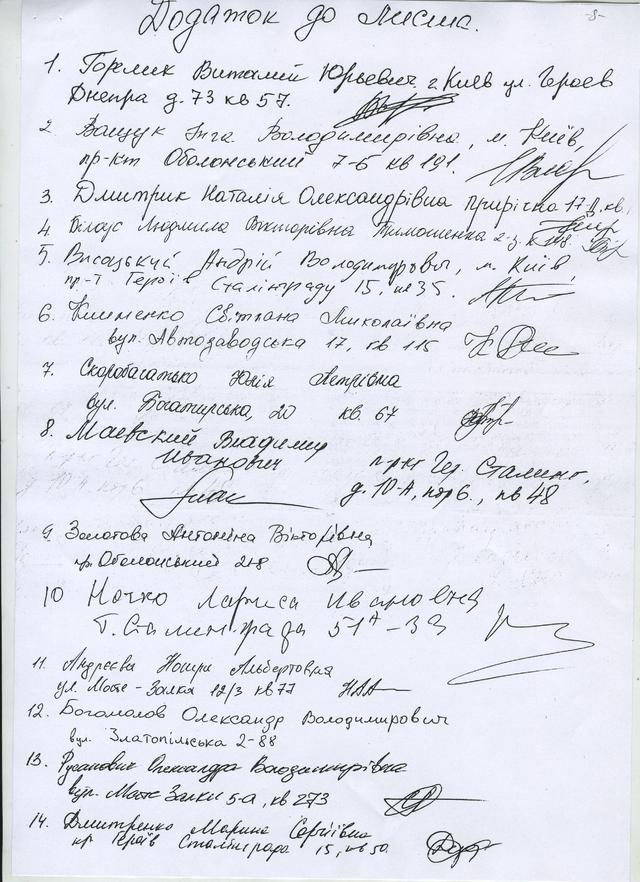 -8-
Додаток до листа.
1. Горелик Виталий Юрьевич г. Киев ул. Героев
Днепра д. 73 кв 57.
2. Ващук Інга Володимирівна, м. Київ,
пр-кт Оболонський 7-Б кв 191.
3. Дмитрик Наталія Олександрівна Прирічна 17
4. Білоус Людмила Вікторівна Тимошенка
5. Висоцький Андрій Володимирович, м. Київ,
пр-т. Героїв Сталінграду 15, кв 35.
6. Клименко Світлана Миколаївна
вул. Автозаводська 17, кв 115
7. Скоробагатько Юлія Петрівна
вул. Богатирська, 20 кв. 67
8. Маевский Владимир
Иванович
пр-кт Гер. Сталинг.
д. 10-А, кор 6., кв 48
9. Золотова Антоніна Вікторівна
пр. Оболонський
10 Ночко Лариса Ивановна
Г. Сталинграда 51А - 33
11. Андреєва Альбертовна
ул. Мате-Залка 12/3 кв 77
12. Богомолов Олександр Володимирович
вул. Златопільська 2-88
13. Русанович Олександра Володимирівна
вул. Мате Залки 5-а, кв 273
14. Дмитренко Марина Сергіївна
пр Героїв Сталінграда 15, кв 50